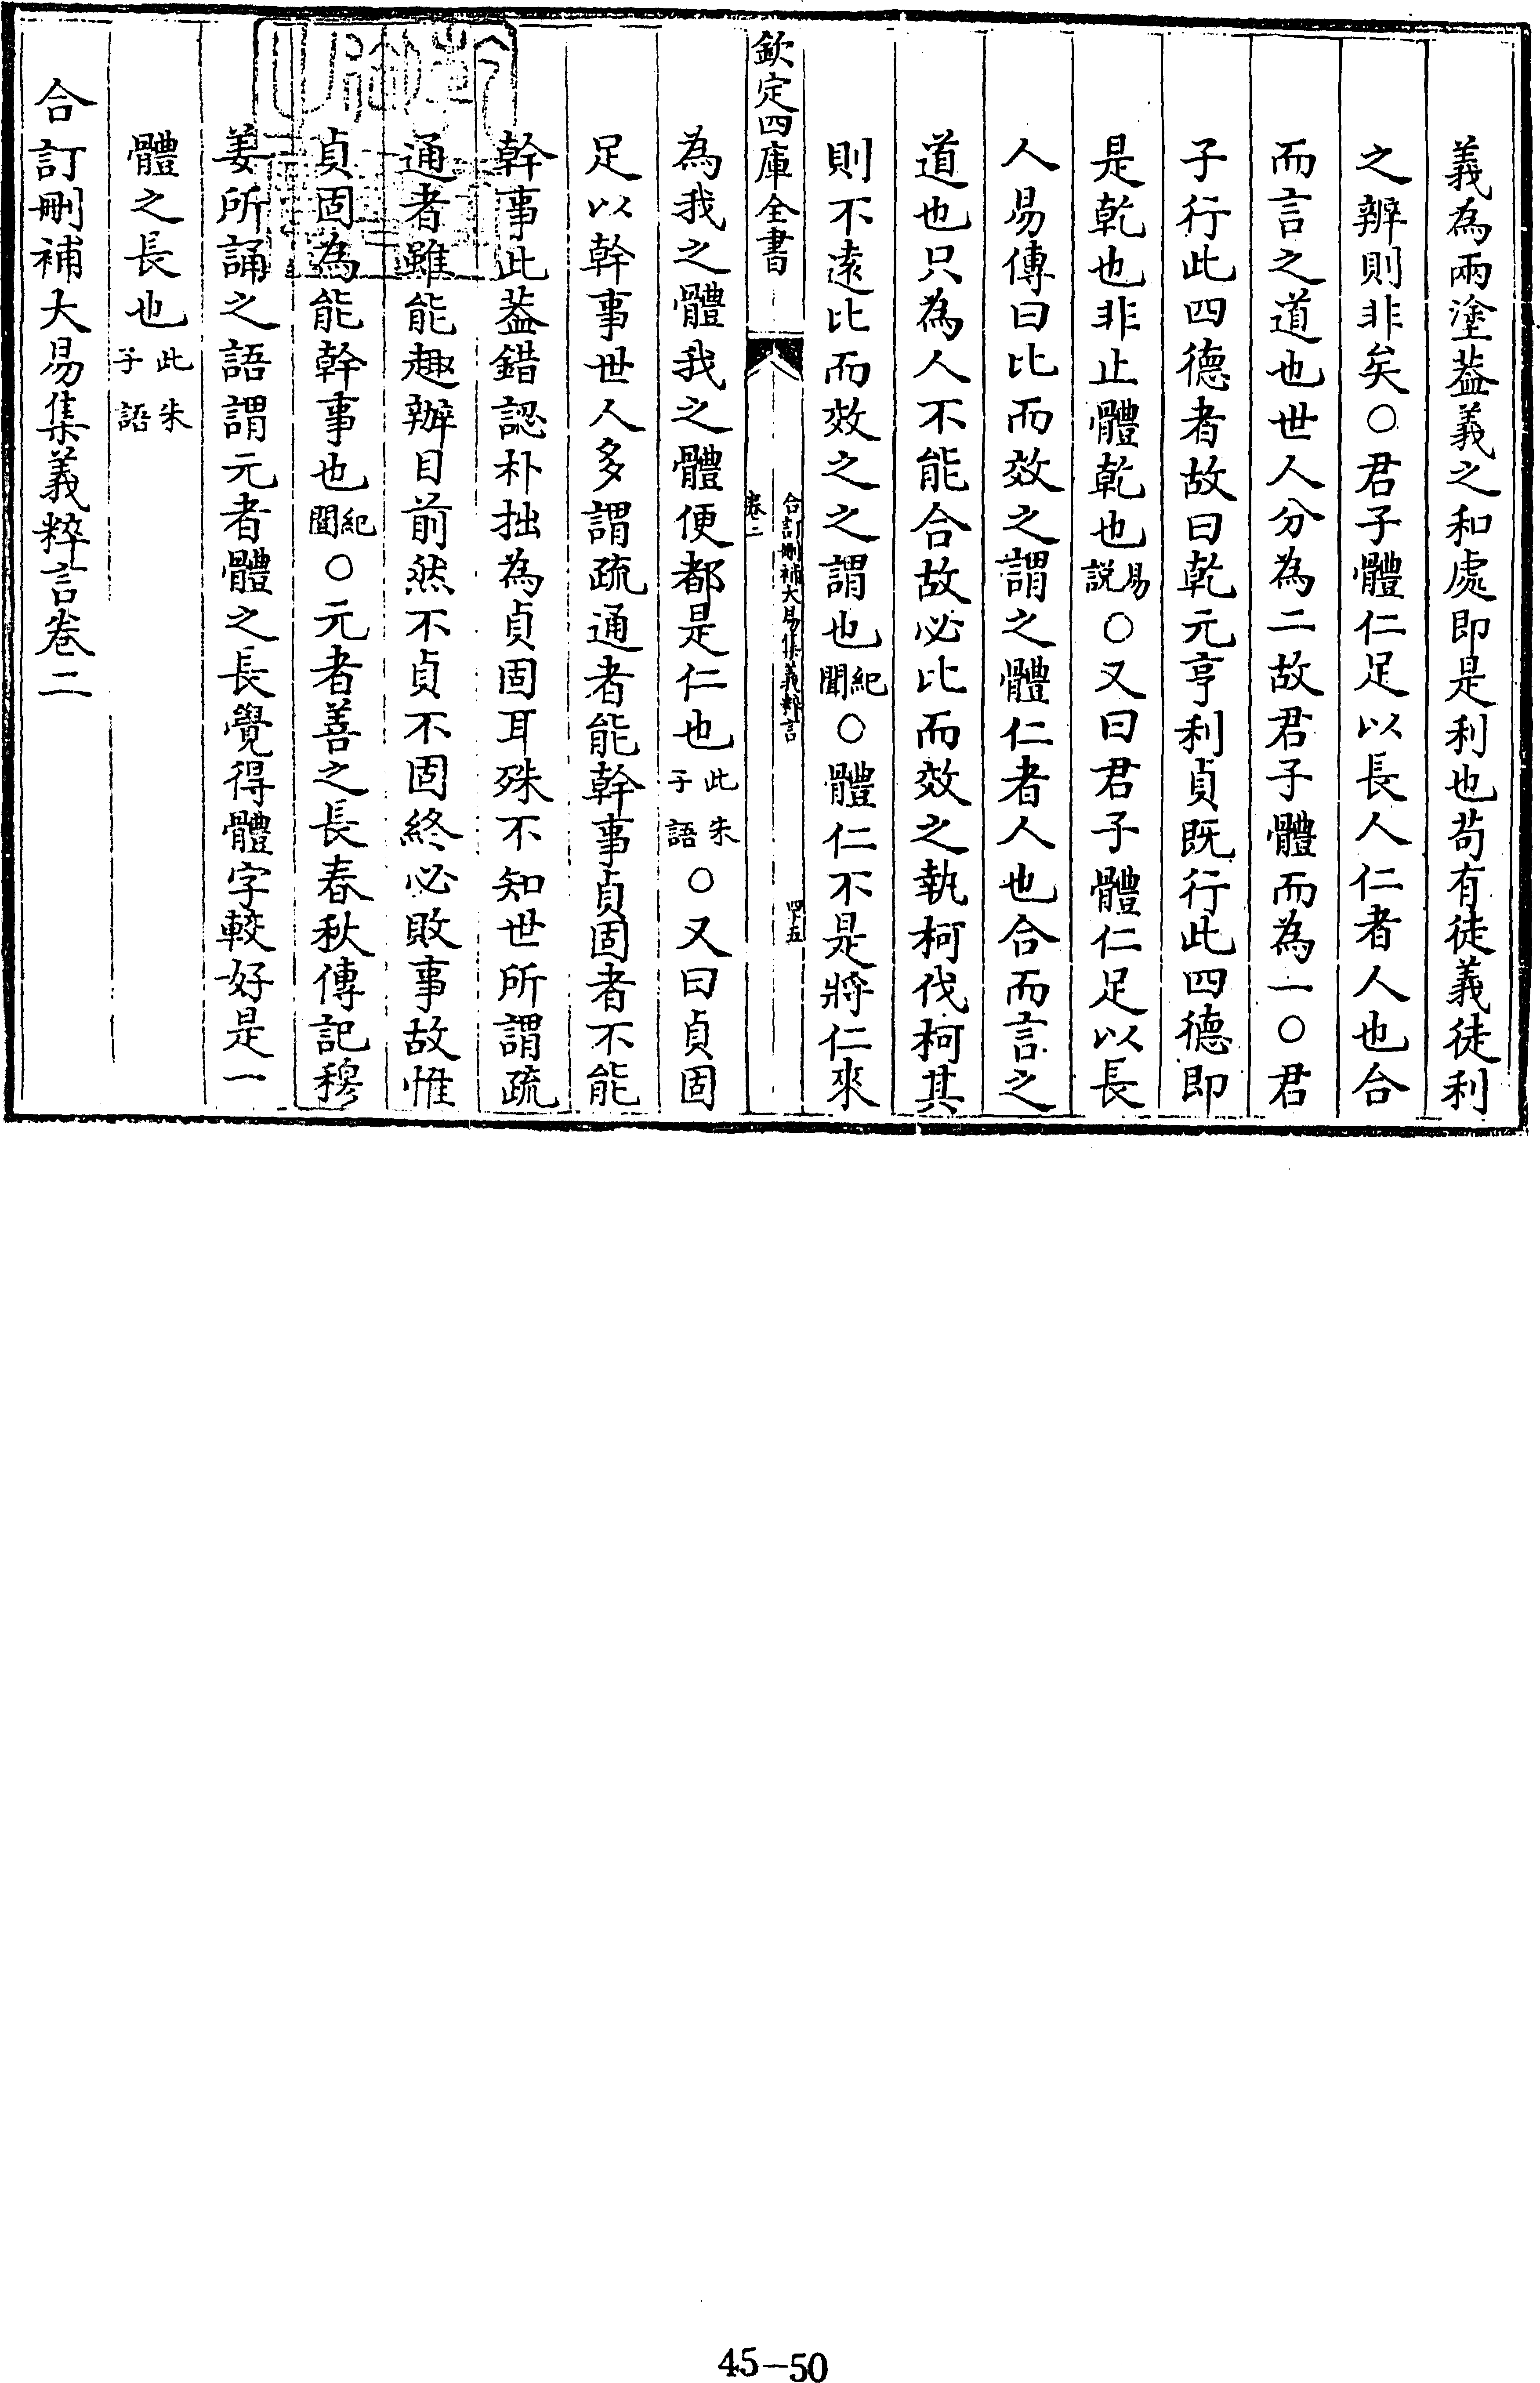 義為兩塗葢義之和處即是利也苟有徒義徒利
之辨則非矣○君子體仁足以長人仁者人也合
而言之道也世人分為二故君子體而為一○君
子行此四德者故曰乾元亨利貞既行此四德即
是乾也非止體乾也易説○又曰君子體仁足以長
人易傳曰比而效之謂之體仁者人也合而言之
道也只為人不能合故必比而效之執柯伐柯其
則不遠比而效之之謂也紀聞○體仁不是將仁來
欽定四庫全書
合訂刪補大易集義粹言
卷二
四十五
為我之體我之體便都是仁也此朱子語○又曰貞固
足以幹事世人多謂疏通者能幹事貞固者不能
幹事此葢錯認朴拙為貞固耳殊不知世所謂疏
通者雖能趣辦目前然不貞不固終必敗事故惟
貞固為能幹事也紀聞○元者善之長春秋傳記穆
姜所誦之語謂元者體之長覺得體字較好是一
體之長也此朱子語
合訂刪補大易集義粹言卷二
45-50